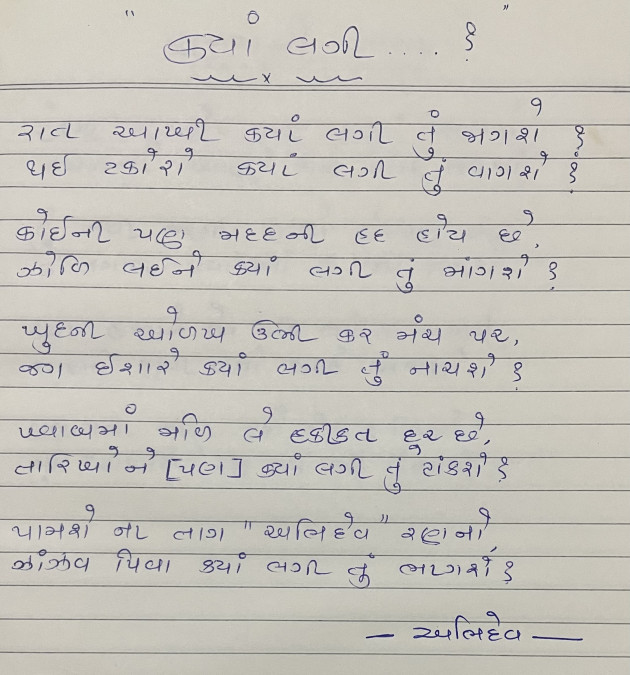 " ક્યાં લગી .... ? "
રાત આખી ક્યાં લગી તું જાગશે ?
થઇ ટકોરો ક્યાં લગી તું વાગશે ?
કોઈની પણ મદદની હદ હોય છે,
ઝોળિ લઈને ક્યાં લગી તું માંગશે ?
ખુદની ઓળખ ઉભી કર મંચ પર,
જગ ઈશારે ક્યાં લગી તું નાચશે ?
ખ્વાબમાં મળિ લે હકીકત દૂર છે,
તારિખોને [પણ] ક્યાં લગી તું ટાંકશે ?
પામશે ના તાગ "અભિદેવ" રણનો,
ઝાંઝવ પિવા ક્યાં લગી તું ભાગશે ?
— અભિદેવ —